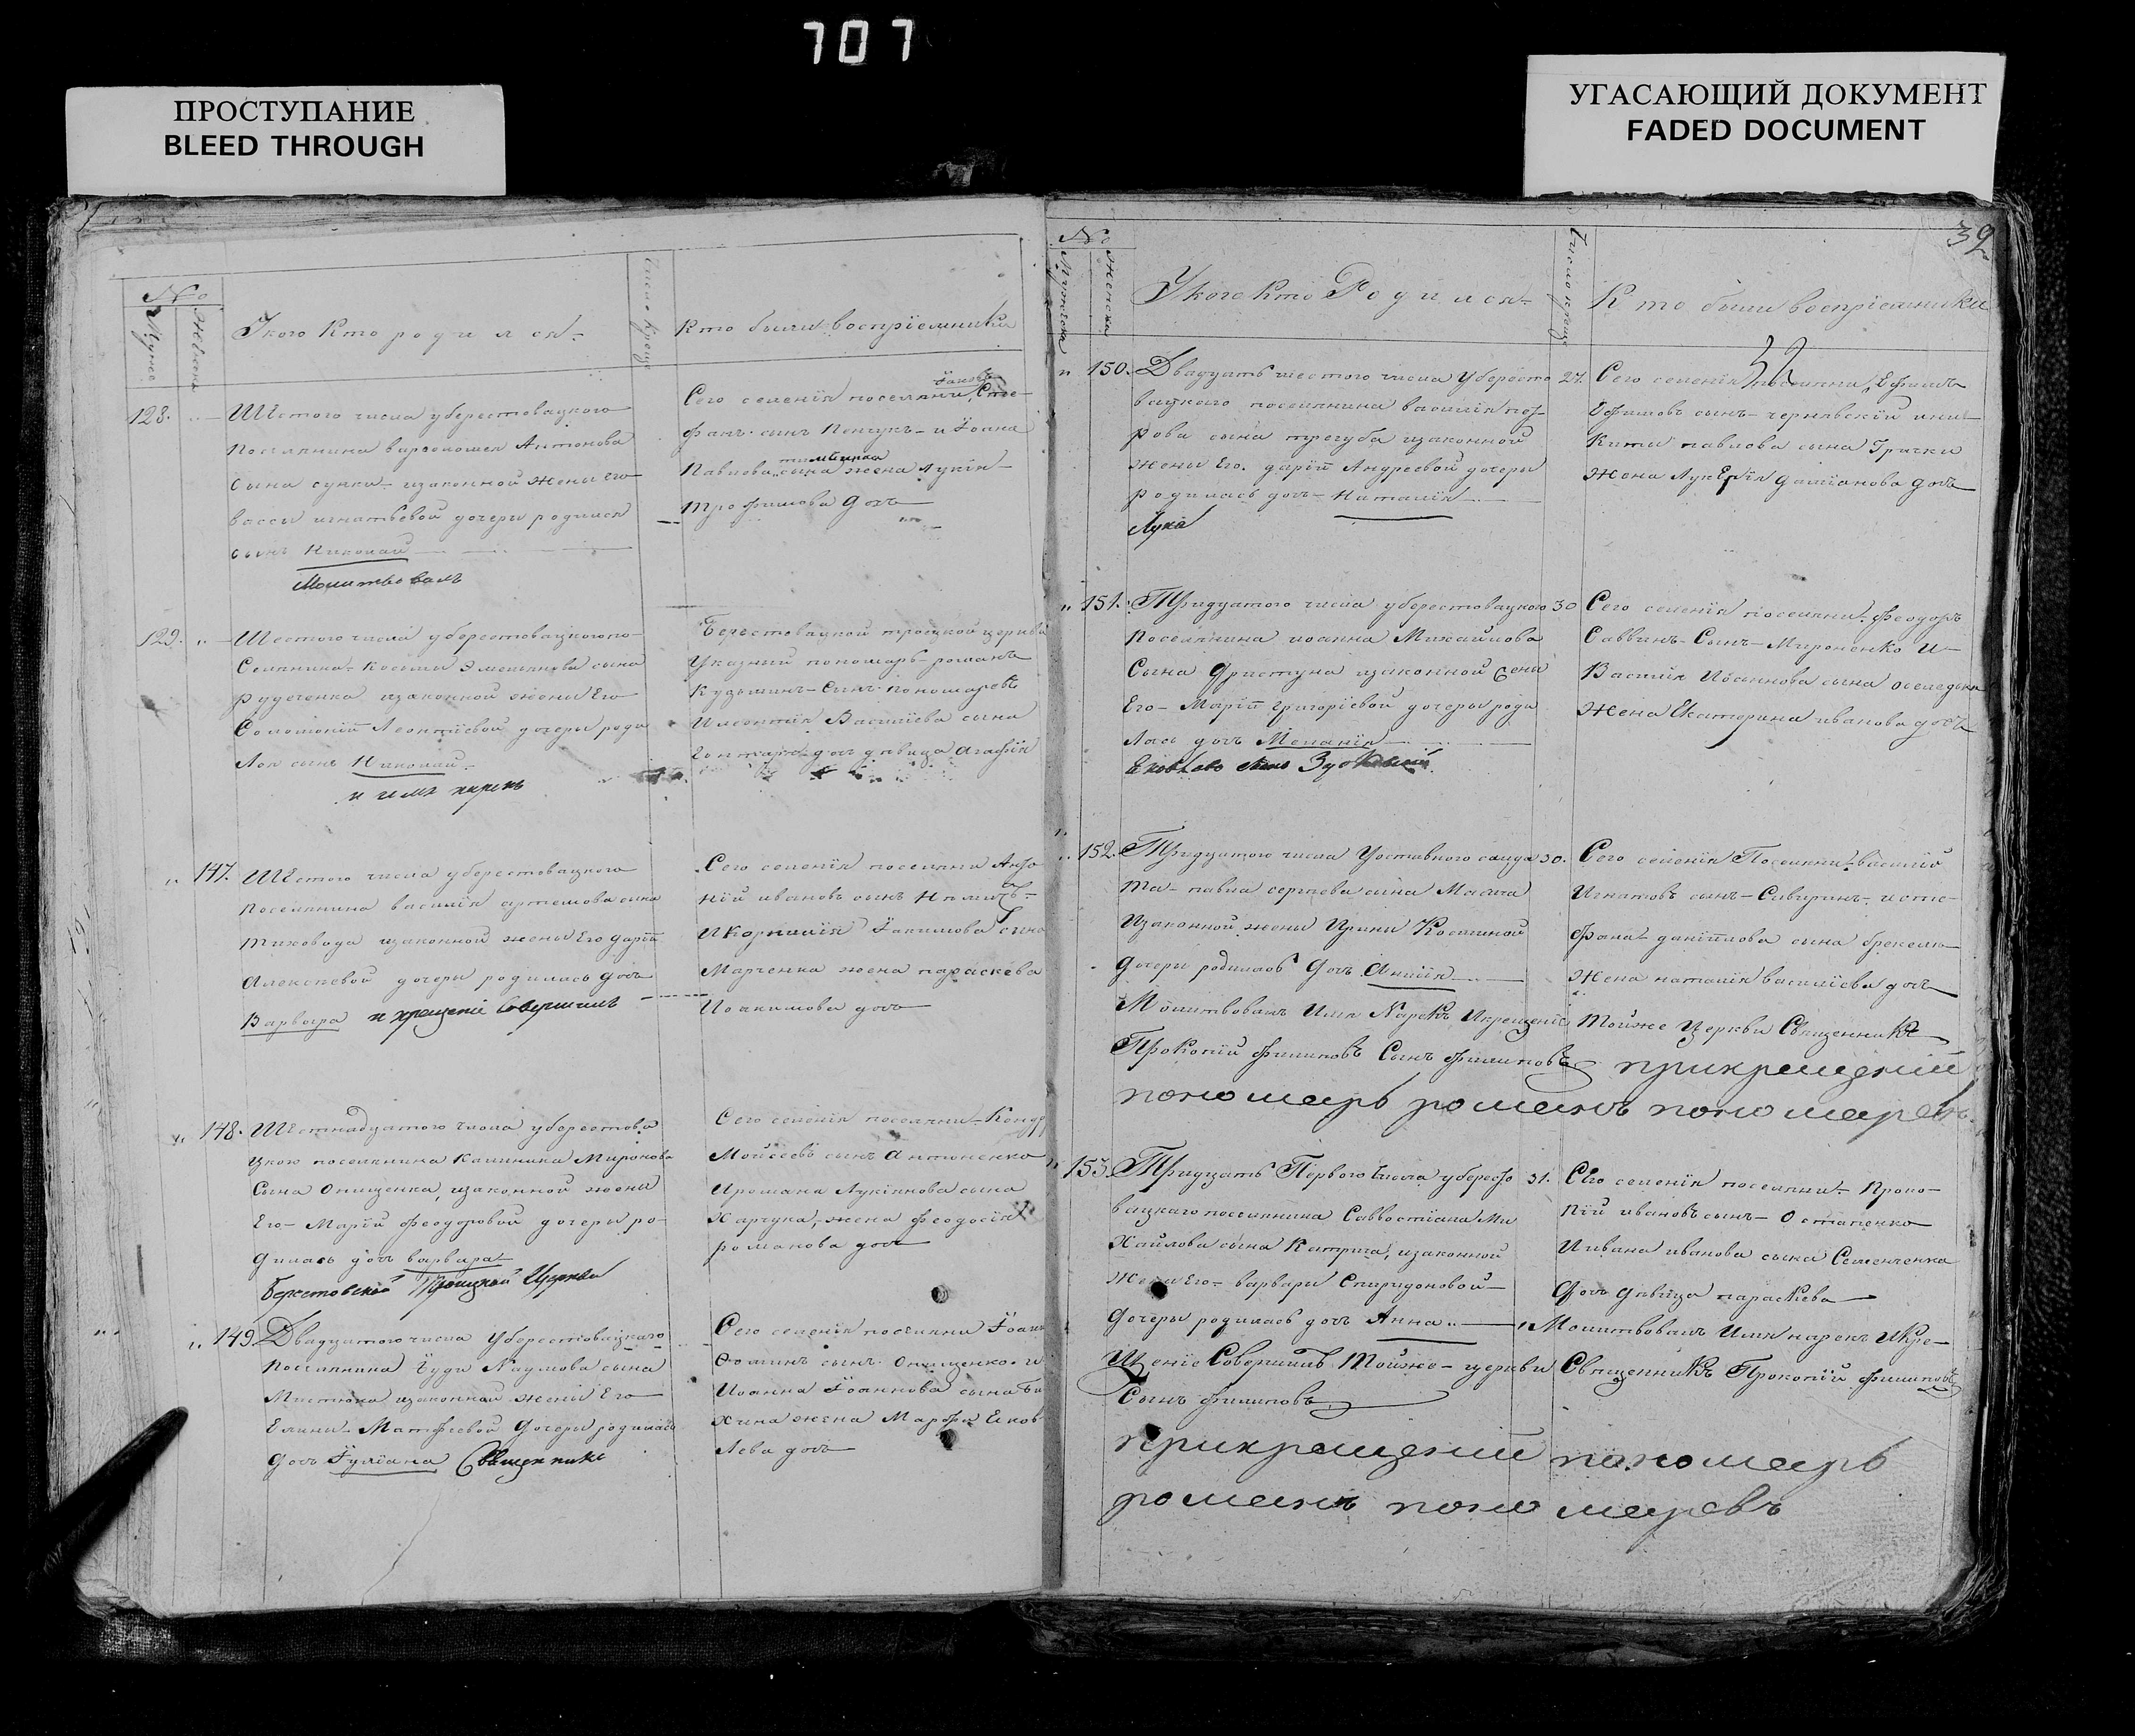 707
ПРОСТУПАНИЕ
BLEED THROUGH
УГАСАЮЩИЙ ДОКУМЕНТ
FADED DOCUMENT
№
Мужес
Женск
Укого Кто родился
Число Крещ
Кто были воспріемники
128.
Шестого числа уберестовацкого
Поселянина варѳоломея Антонова
сына сучка изаконной жены Его
вассы игнатьевой дочери родился
сынъ Николай
Молитвовалъ
Іаковъ
Сего селенія поселяни Сте-
фанъ сынъ Пенчукъ и Іоана
Павлова сына жена лукія
Трофимова Дочь
129.
Шестого числа уберестовацкого по-
Селянина Косьмы Эмельянова сына
Рудеченка изаконной жены Его
Соломоніи Леонтіевой дочери роди
Лся сынъ Николай
и имя нарекъ
Берестовацкой троецкой церкви
Указный пономарь романъ
Кузьминъ Сынъ Пономаревъ
Илеонтія Василіева сына
дочь дѣвица Агафія
147.
Шестого числа уберестовацкого
поселянина василія артемова сына
Тиховода изаконной жены Его даріи
Алексеевой дочери родилась дочь
Варвара и крещеніе совершилъ
Сего селенія поселяни Анто
ній ивановъ сынъ
И Корнилія Іакимова Сына
Марченка жена параскева
Иоакимова дочь
148.
Шестнадцатого числа уберестова
цкого поселянина Калиника Миронова
Сына Онищенка, изаконной жены
Его Маріи феодоровой дочери ро-
дилась дочь варвара
Берестовской Троицкой Церкви
Сего селенія поселяни Кондр
Мойсеевъ сынъ Антоненко
Иромана Лукіянова сына
Харчука, жена феодосія
романова дочь
149
Двадцатого числа Уберестовацкаго
Поселянина Іуди Наумова сына
изаконной жены Его
Елены Матфеевой Дочери родилась
Дочь Іуліана Священникъ
Сего селенія поселяни Іоанъ
Ѳоминъ сынъ Онищенко и
Иоанна Іоаннова сына Би
хина жена Марфа Еков
Лева дочь
39
№
Мужеска
Женска
Укого Кто Родился
Число крещ
Кто были воспріемники
39
150.
Двадцать шестого числа Убересто
вацкаго поселянина василія пет
рова сына трегуба изаконной
жены Его. даріи Андреевой дочери
родилась дочь Наталія
Лука
27.
Сего селенія поселяни, Ефимъ
Ефимовъ сынъ чернявскій ини
киты павлова сына Грички
Жена Лукерія даміанова дочь
151.
Тридцатого числа уберестовацкого
поселянина иоанна Михайлова
Сына Фристуна изаконной жены
Его Маріи григоріевой дочери роди
Лась дочь Меланія
30
Сего селенія поселяни феодоръ
Саввинъ Сынъ Мироненко И
Василія Иоаннова сына оселедька
Жена Екатерина иванова дочь
152.
Тридцатого числа Уоставного солда
та павла сергіева сына Масича
Изаконной жены Ирины Косминой
Дочери родилась Дочь Анисія
30.
Сего селенія Поселяни василій
Игнатовъ сынъ Сивиринъ исте-
фана даніилова сына брекела
Жена наталія василіева дочь
Молитвовалъ Имя Нарекъ Икрещеніе Тойже Церкви Священникъ
Прокопій филиповъ Сынъ филиповъ прикрещеній
пономарь романъ пономаревъ
153.
Тридцать Первого Числа убересто
вацкаго поселянина Саввостіана Ми
Хайлова сына Катрича, изаконной
жены Его варвары Спиридоновой
дочери родилась дочь Анна
31.
Сего селенія поселяни Проко-
пій ивановъ сынъ Остапенко
И ивана иванова сына Семенченка
Дочь дѣвица параскева
Молитвовалъ Имя нарекъ Икре-
щеніе Совершилъ Тойже церкви Священникъ Прокопій филиповъ
Сынъ филиповъ
прикрещеній пономарь
романъ пономаревъ